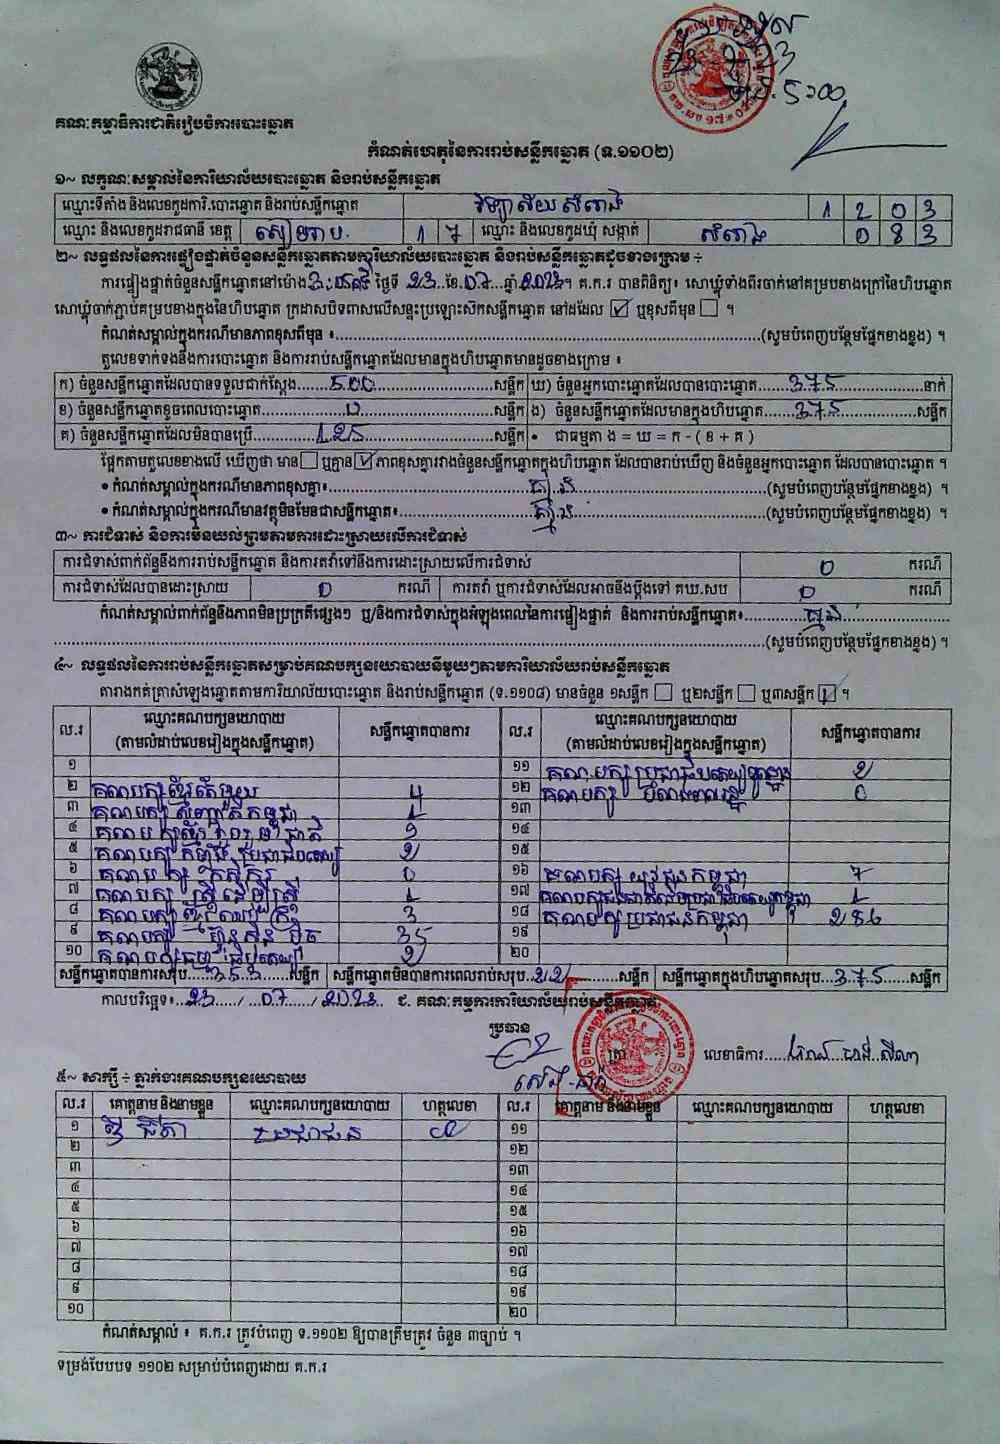 គណៈកម្មាធិការជាតិរៀបចំការបោះឆ្នោត
កំណត់ហេតុនៃការរាប់សន្លឹកឆ្នោត (ទ.១១០២)
១~ លក្ខណៈសម្គាល់នៃការិយាល័យបោះឆ្នោត និងរាប់សន្លឹកឆ្នោត
ឈ្មោះទីតាំង និងលេខកូដការិ.បោះឆ្នោត និងរាប់សន្លឹកឆ្នោត វិទ្យាល័យ សំរោង 1 2 0 3
ឈ្មោះ និងលេខកូដរាជធានី ខេត្ត សៀមរាប 1 7 ឈ្មោះ និងលេខកូដឃុំ សង្កាត់ សំរោង 0 8 3
២~ លទ្ធផលនៃការផ្ទៀងផ្ទាត់ចំនួនសន្លឹកឆ្នោតតាមការិយាល័យបោះឆ្នោត និងរាប់សន្លឹកឆ្នោតដូចខាងក្រោម ÷
ការផ្ទៀងផ្ទាត់ចំនួនសន្លឹកឆ្នោតនៅម៉ោង ថ្ងៃទី 23 ខែ 07 ឆ្នាំ 2023 ។ គ.ក.រ បានពិនិត្យ៖ សោឃ្លុំទាំងពីរចាក់នៅគម្របខាងក្រៅនៃហិបឆ្នោត
សោឃ្លុំចាក់ភ្ជាប់គម្របខាងក្នុងនៃហិបឆ្នោត ក្រដាសបិទពាសលើសន្ទះប្រឡោះស៊កសន្លឹកឆ្នោត នៅដដែល ☑ ឬខុសពីមុន ☐ ។
កំណត់សម្គាល់ក្នុងករណីមានភាពខុសពីមុន ៖ (សូមបំពេញបន្ថែមផ្នែកខាងខ្នង) ។
តួលេខទាក់ទងនឹងការបោះឆ្នោត និងការរាប់សន្លឹកឆ្នោតដែលមានក្នុងហិបឆ្នោតមានដូចខាងក្រោម ៖
ក) ចំនួនសន្លឹកឆ្នោតដែលបានទទួលជាក់ស្តែង 500 សន្លឹក ឃ) ចំនួនអ្នកបោះឆ្នោតដែលបានបោះឆ្នោត 375 នាក់
ខ) ចំនួនសន្លឹកឆ្នោតខូចពេលបោះឆ្នោត 0 សន្លឹក ង) ចំនួនសន្លឹកឆ្នោតដែលមានក្នុងហិបឆ្នោត 375 សន្លឹក
គ) ចំនួនសន្លឹកឆ្នោតដែលមិនបានប្រើ 125 សន្លឹក • ជាធម្មតា ង = ឃ = ក - ( ខ + គ )
ផ្អែកតាមតួលេខខាងលើ ឃើញថា មាន ☐ ឬគ្មាន ☑ ភាពខុសគ្នារវាងចំនួនសន្លឹកឆ្នោតក្នុងហិបឆ្នោត ដែលបានរាប់ឃើញ និងចំនួនអ្នកបោះឆ្នោត ដែលបានបោះឆ្នោត ។
• កំណត់សម្គាល់ក្នុងករណីមានភាពខុសគ្នា៖ គ្មាន (សូមបំពេញបន្ថែមផ្នែកខាងខ្នង) ។
• កំណត់សម្គាល់ក្នុងករណីមានវត្ថុមិនមែនជាសន្លឹកឆ្នោត៖ គ្មាន (សូមបំពេញបន្ថែមផ្នែកខាងខ្នង) ។
៣~ ការជំទាស់ និងការមិនយល់ព្រមតាមការដោះស្រាយលើការជំទាស់
ការជំទាស់ពាក់ព័ន្ធនឹងការរាប់សន្លឹកឆ្នោត និងការតវ៉ាទៅនឹងការដោះស្រាយលើការជំទាស់ 0 ករណី
ការជំទាស់ដែលបានដោះស្រាយ 0 ករណី ការតវ៉ា ឬការជំទាស់ដែលអាចនឹងប្តឹងទៅ គឃ.សប 0 ករណី
កំណត់សម្គាល់ពាក់ព័ន្ធនឹងភាពមិនប្រក្រតីផ្សេងៗ ឬ/និងការជំទាស់ក្នុងអំឡុងពេលនៃការផ្ទៀងផ្ទាត់ និងការរាប់សន្លឹកឆ្នោត៖ គ្មាន
(សូមបំពេញបន្ថែមផ្នែកខាងខ្នង) ។
៤~ លទ្ធផលនៃការរាប់សន្លឹកឆ្នោតសម្រាប់គណបក្សនយោបាយនីមួយៗតាមការិយាល័យរាប់សន្លឹកឆ្នោត
តារាងកត់ត្រាសំឡេងឆ្នោតតាមការិយាល័យបោះឆ្នោត និងរាប់សន្លឹកឆ្នោត (ទ.១១០៨) មានចំនួន ១សន្លឹក ☐ ឬ២សន្លឹក ☐ ឬ៣សន្លឹក ☑ ។
ល.រ ឈ្មោះគណបក្សនយោបាយ (តាមលំដាប់លេខរៀងក្នុងសន្លឹកឆ្នោត) សន្លឹកឆ្នោតបានការ ល.រ ឈ្មោះគណបក្សនយោបាយ (តាមលំដាប់លេខរៀងក្នុងសន្លឹកឆ្នោត) សន្លឹកឆ្នោតបានការ
១ ១១ គណបក្ស ប្រជាធិបតេយ្យមូលដ្ឋាន 2
២ គណបក្សខ្មែរតែមួយ 4 ១២ គណបក្ស 0
៣ គណបក្ស សញ្ជាតិកម្ពុជា 1 ១៣
៤ គណបក្សខ្មែរ ជាតិ ១៤
៥ គណបក្ស កម្លាំងប្រជាធិបតេយ្យ 2 ១៥
៦ គណបក្ស កសិករ 0 ១៦ គណបក្ស យុវជនកម្ពុជា 7
៧ គណបក្ស ស្ត្រីដើម្បីស្ត្រី 1 ១៧ 1
៨ គណបក្ស ខ្មែរ 3 ១៨ គណបក្សប្រជាជនកម្ពុជា
៩ គណបក្ស ហ្វ៊ុនស៊ិនប៉ិច 35 ១៩
១០ គណបក្សធម្មាធិបតេយ្យ 2 ២០
សន្លឹកឆ្នោតបានការសរុប 353 សន្លឹក សន្លឹកឆ្នោតមិនបានការពេលរាប់សរុប 22 សន្លឹក សន្លឹកឆ្នោតក្នុងហិបឆ្នោតសរុប 375 សន្លឹក
កាលបរិច្ឆេទ៖ 23 / 07 / 2023 ជ. គណៈកម្មការការិយាល័យរាប់សន្លឹកឆ្នោត
ប្រធាន
ត្រា លេខាធិការ
៥~ សាក្សី ÷ ភ្នាក់ងារគណបក្សនយោបាយ
ល.រ គោត្តនាម និងនាមខ្លួន ឈ្មោះគណបក្សនយោបាយ ហត្ថលេខា ល.រ គោត្តនាម និងនាមខ្លួន ឈ្មោះគណបក្សនយោបាយ ហត្ថលេខា
១ ប្រជាជន ១១
២ ១២
៣ ១៣
៤ ១៤
៥ ១៥
៦ ១៦
៧ ១៧
៨ ១៨
៩ ១៩
១០ ២០
កំណត់សម្គាល់ ៖ គ.ក.រ ត្រូវបំពេញ ទ.១១០២ ឱ្យបានត្រឹមត្រូវ ចំនួន ៣ច្បាប់ ។
ទម្រង់បែបបទ ១១០២ សម្រាប់បំពេញដោយ គ.ក.រ